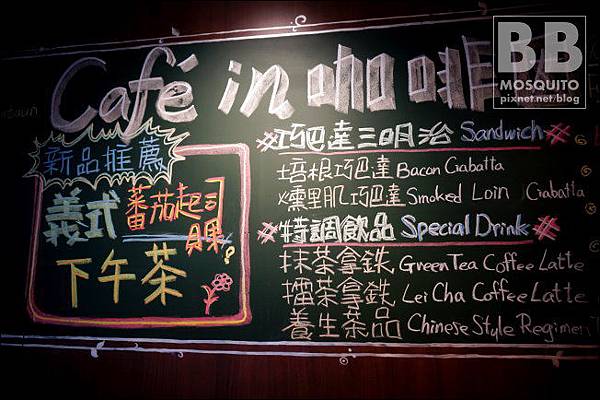 Café in 咖啡
新品推薦
義式 蕃茄起司
貝果
下午茶
巧巴達三明治 Sandwich
培根巧巴達 Bacon Ciabatta
燻里肌巧巴達 Smoked Loin Ciabatta
特調飲品 Special Drink
抹茶拿鉄 Green Tea Coffee Latte
擂茶拿鉄 Lei Cha Coffee Latte
養生茶品 Chinese Style Regimen
BB
MOSQUITO
pixnet.net/blog